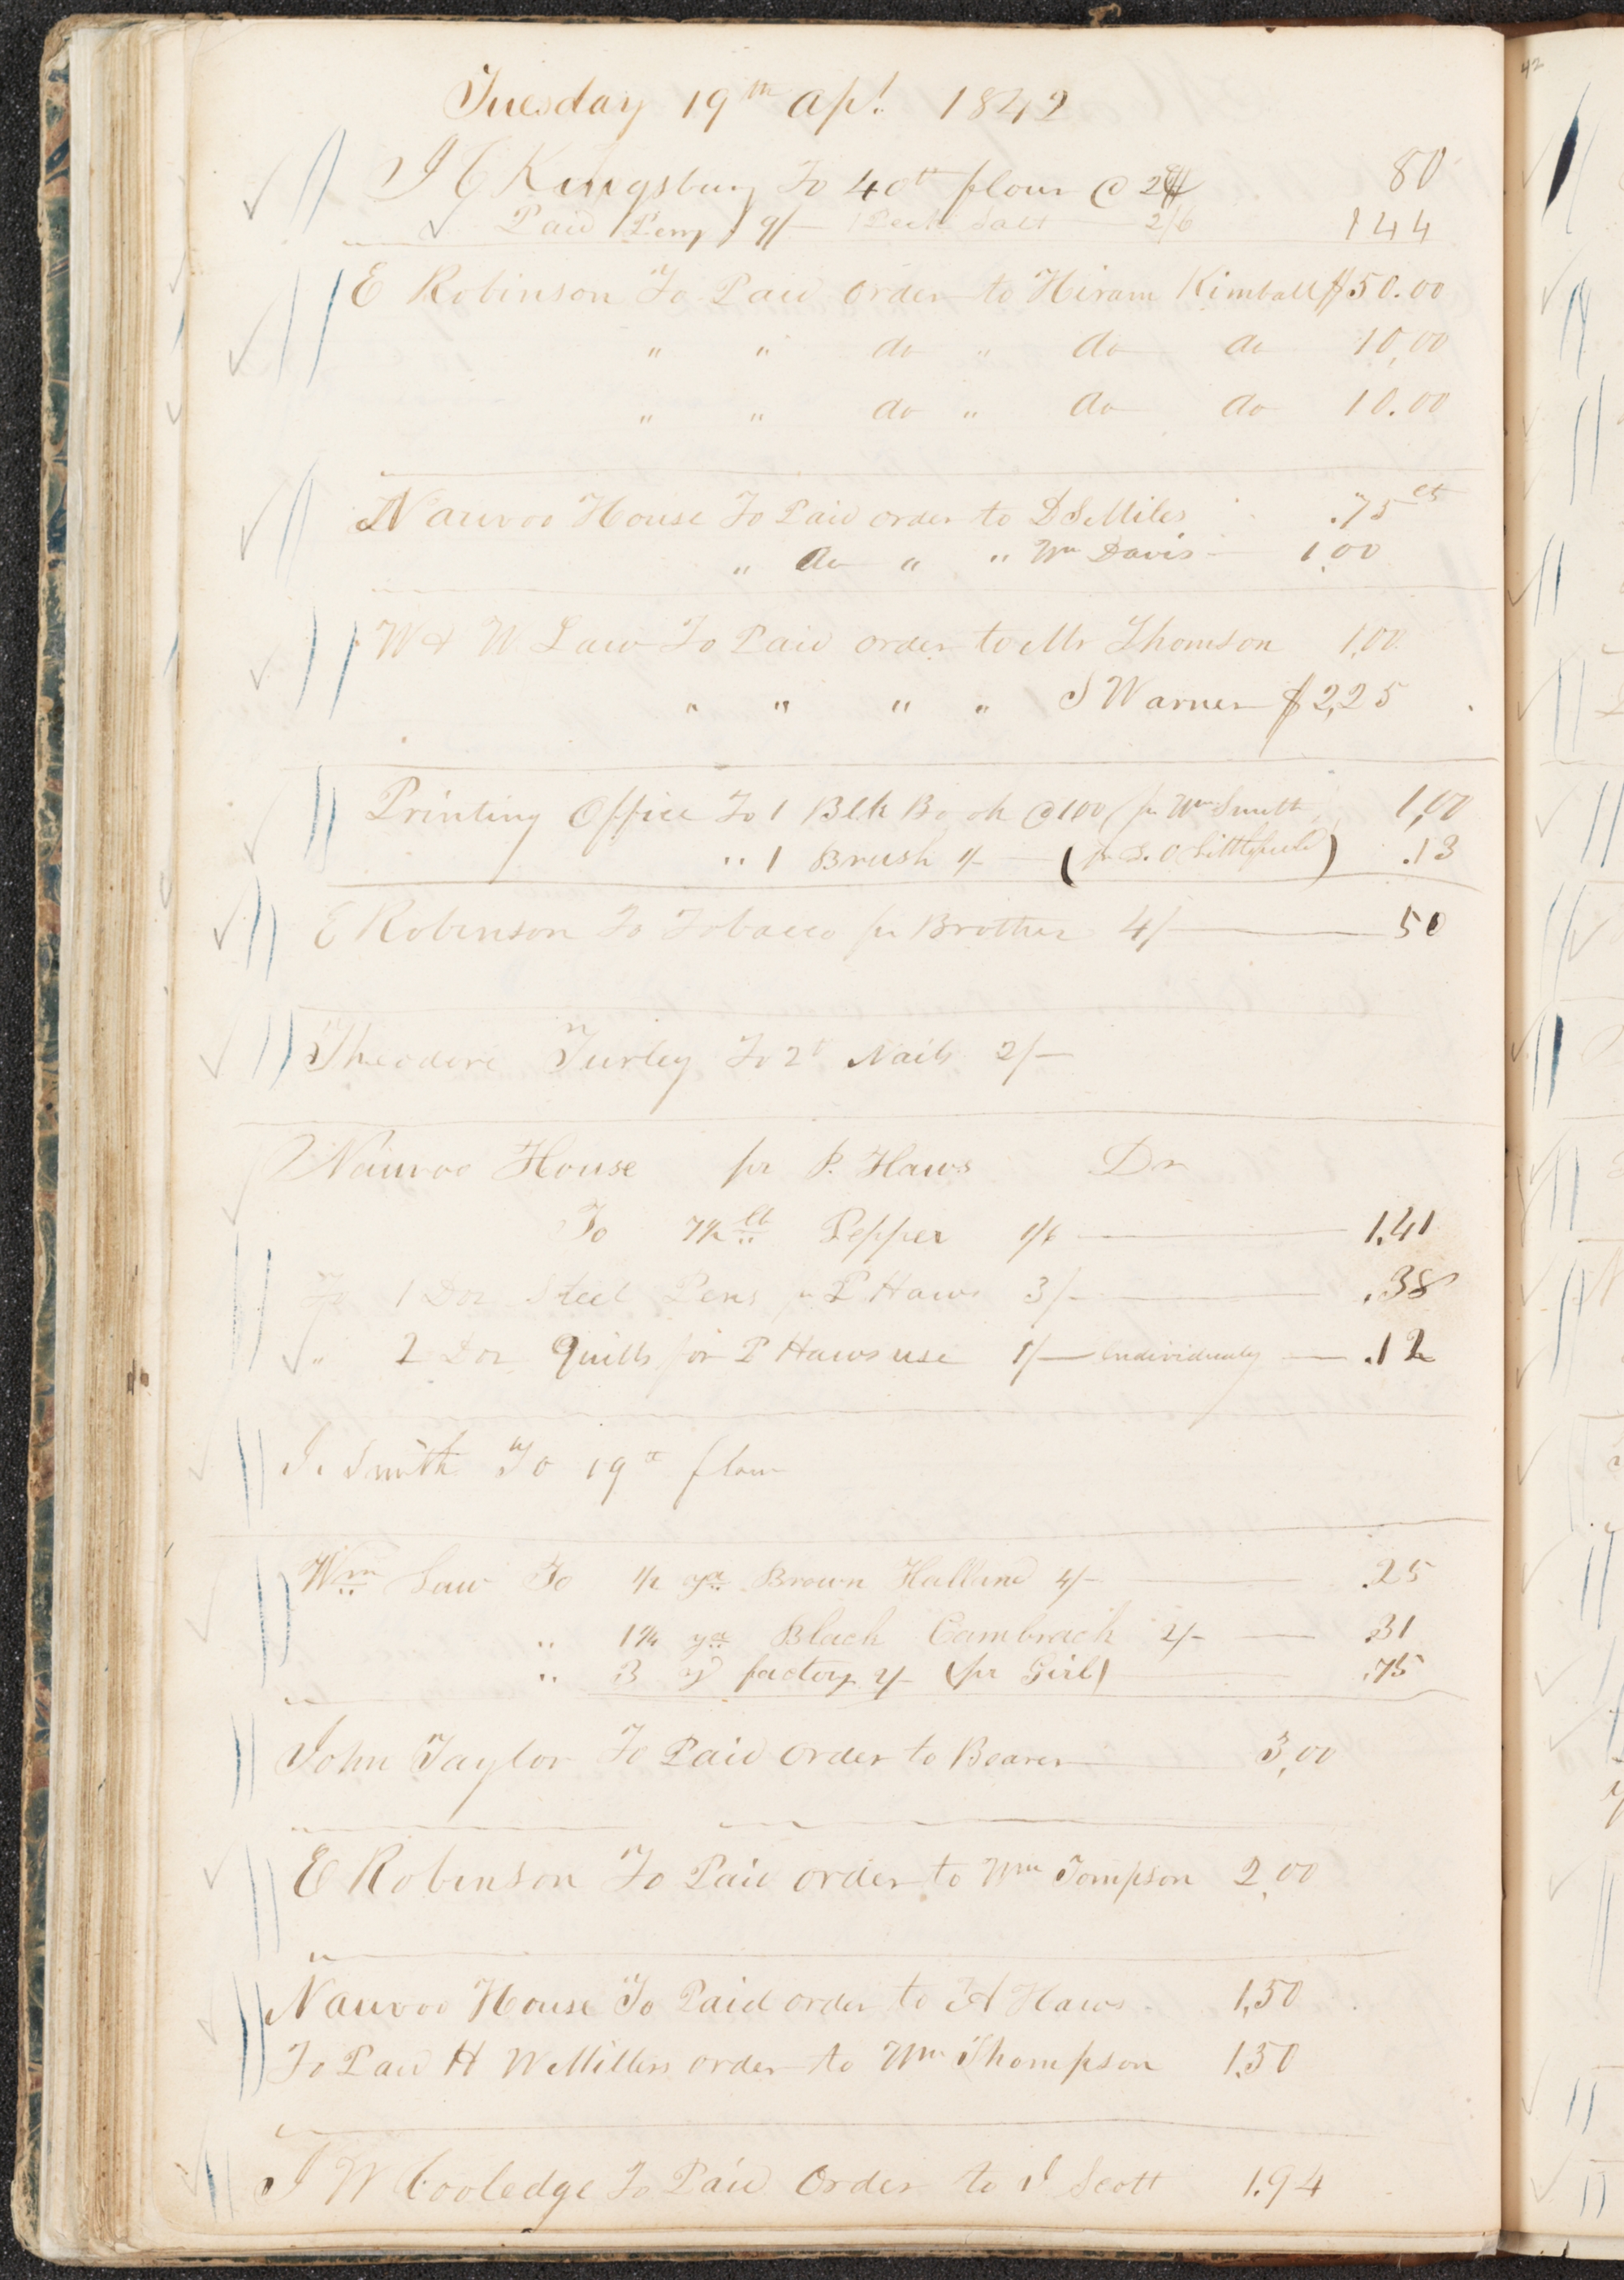 Tuesday 19th Apl. 1842
J C Kingsbury To 40 lb flour @ 2 80
Paid Perry 9/— 1 Peck Salt 2/6 144
E Robinson To Paid order to Hiram Kimball $50.00
" " do " do do 10,00
" " do " do do 10.00
Nauvoo House To Paid order to D S Miles .75 cts
" do " " Wm Davis 1,00
W & W Law To Paid order to Mr Thomson 1,00
" " " " S Warner $2,25
Printing Office To 1 Blk Book @ 100 (pr Wm Smith 1,00
" 1 Brush 1/— (pr L. O Littlefield) .13
E Robinson To Tobacco pr Brother 4/— 50
Theodore Turley To 2 lb Nails 2/—
Nauvoo House pr P. Haws Dr
To 7½ lb Pepper 1/6 1.41
To 1 Doz Steel Pens pr P Haws 3/— .38
" 2 Doz Quills for P Haws use 1/— individualy .12
J. Smith To 19 lb flour
Wm Law To ½ yd Brown Holland 4/— .25
" 1¼ yd Black Cambrack 2/— .31
" 3 yd factory 2/— (pr Girl) .75
John Taylor To Paid order to Bearer 3,00
E Robinson To Paid order to Wm Tompson 2,00
Nauvoo House To Paid order to A Haws 1,50
To Paid H W Millers order to Wm Thompson 1.50
J W Cooledge To Paid Order to J Scott 1.94
42